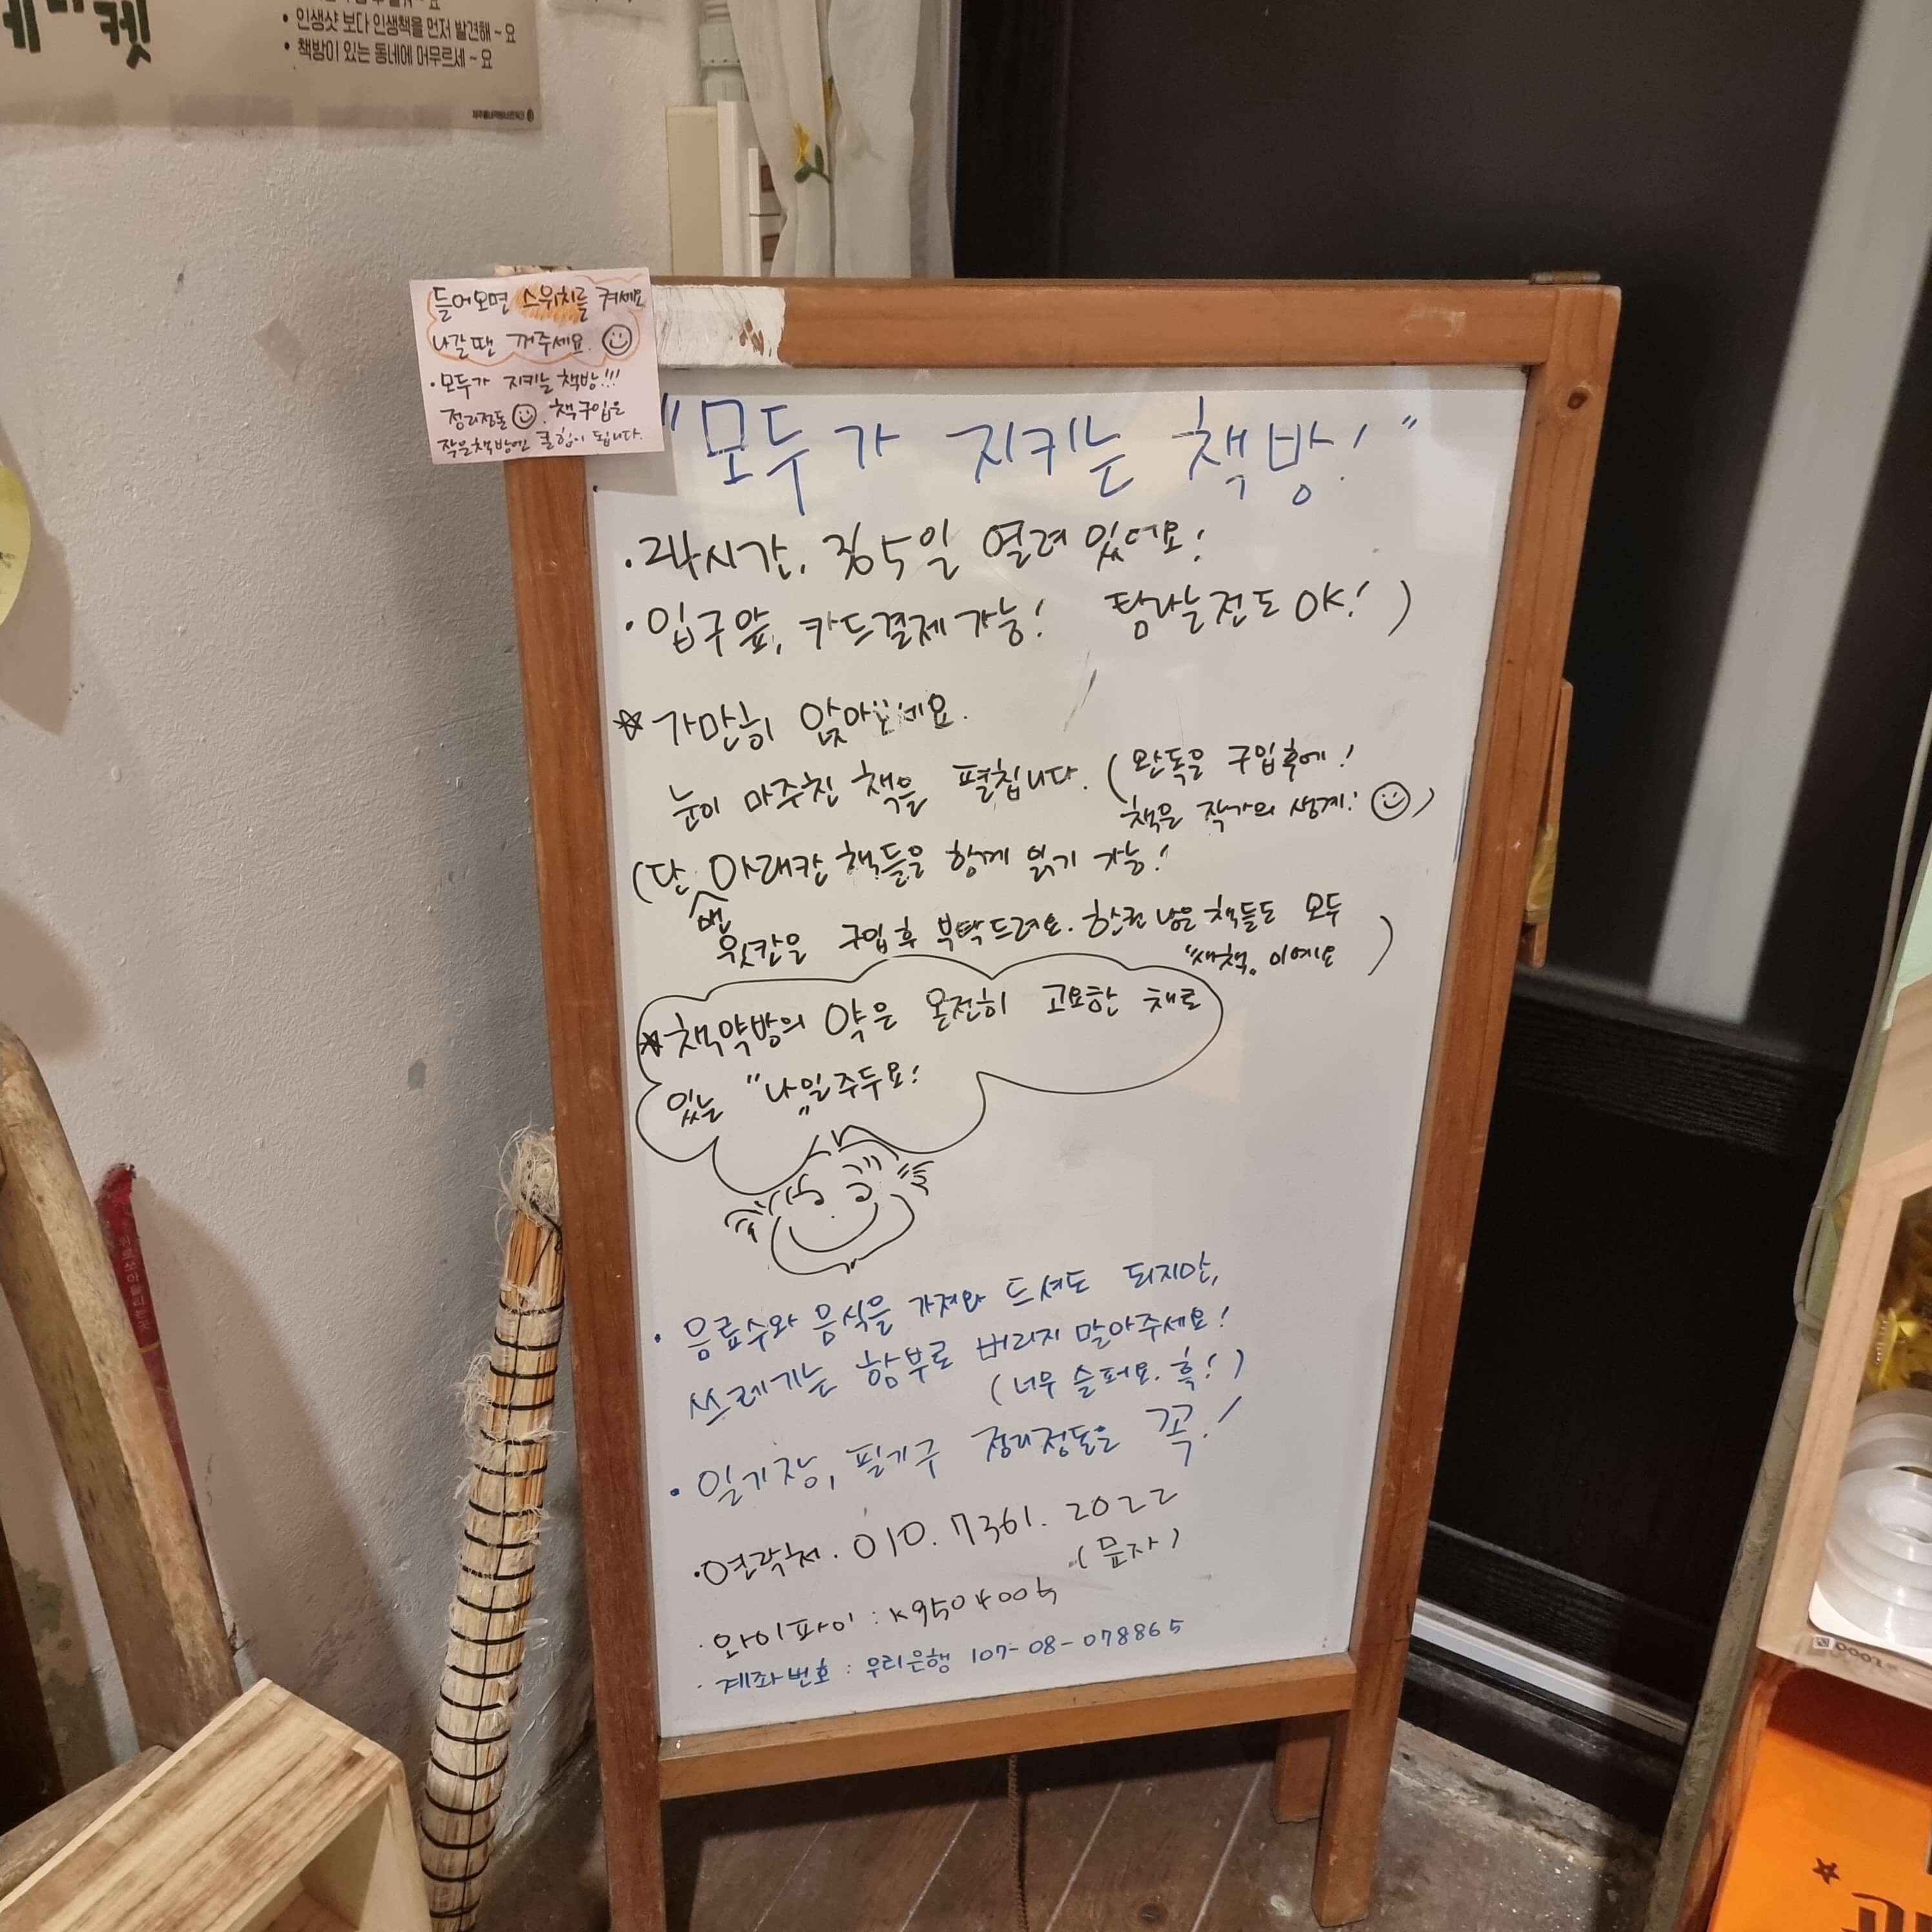 케 켓
• 인생샷 보다 인생책을 먼저 발견해 ~ 요
• 책방이 있는 동네에 머무르세 ~ 요
들어오면 스위치를 켜세요
나갈 땐 꺼주세요.
· 모두가 지키는 책방!!!
정리정돈 . 책 구입은
작은책방엔 큰힘이 됩니다.
"모두가 지키는 책방!"
· 24시간, 365일 열려 있어요!
· 입구앞, 카드결제 가능! 탐나는전도 OK! )
☆ 가만히 앉아보세요.
눈이 마주친 책을 펼칩니다. ( 완독은 구입후에!
책은 작가의 생계! )
(단, 맨 아래칸 책들은 함께 읽기 가능!
윗칸은 구입 후 부탁드려요. 한권 남은 책들도 모두
"새책" 이예요 )
☆ 책약방의 약은 온전히 고요한 채로
있는 "나"일 주두요!
· 음료수와 음식을 가져와 드셔도 되지만,
쓰레기는 함부로 버리지 말아주세요!
(너무 슬퍼요. 흑!)
· 일기장, 필기구 정리정돈은 꼭!
· 연락처. 010. 7361. 2022
(문자)
· 와이파이 : k9504004
· 계좌번호 : 우리은행 107-08-078865